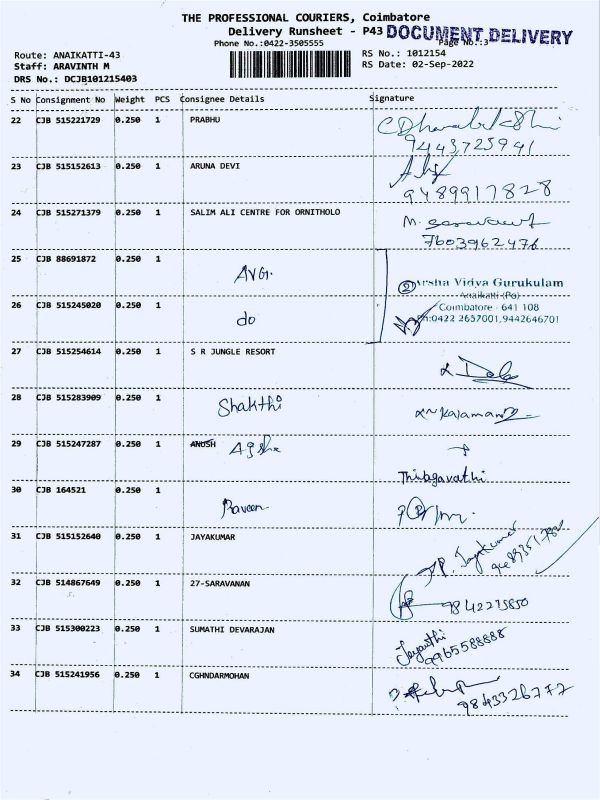 THE PROFESSIONAL COURIERS, Coimbatore
Delivery Runsheet - P43 DOCUMENT DELIVERY
Phone No.:0422-3505555 Page No.:3
Route: ANAIKATTI-43 RS No.: 1012154
Staff: ARAVINTH M RS Date: 02-Sep-2022
DRS No.: DCJB101215403
S No Consignment No Weight PCS Consignee Details Signature
22 CJB 515221729 0.250 1 PRABHU
9443725941
23 CJB 515152613 0.250 1 ARUNA DEVI
9489917828
24 CJB 515271379 0.250 1 SALIM ALI CENTRE FOR ORNITHOLO
7603962476
25 CJB 88691872 0.250 1 AVG.
Arsha Vidya Gurukulam
Anaikatti (Po)
26 CJB 515245020 0.250 1 do
Coimbatore - 641 108
Ph:0422 2657001,9442646701
27 CJB 515254614 0.250 1 S R JUNGLE RESORT
28 CJB 515283909 0.250 1 Shakthi
29 CJB 515247287 0.250 1 ANUSH
Thilagavathi
30 CJB 164521 0.250 1 Raveen
31 CJB 515152640 0.250 1 JAYAKUMAR
P. Jayakumar
32 CJB 514867649 0.250 1 27-SARAVANAN
9842215850
33 CJB 515300223 0.250 1 SUMATHI DEVARAJAN
Jayanthi
9965588888
34 CJB 515241956 0.250 1 CGHNDARMOHAN
9843326772